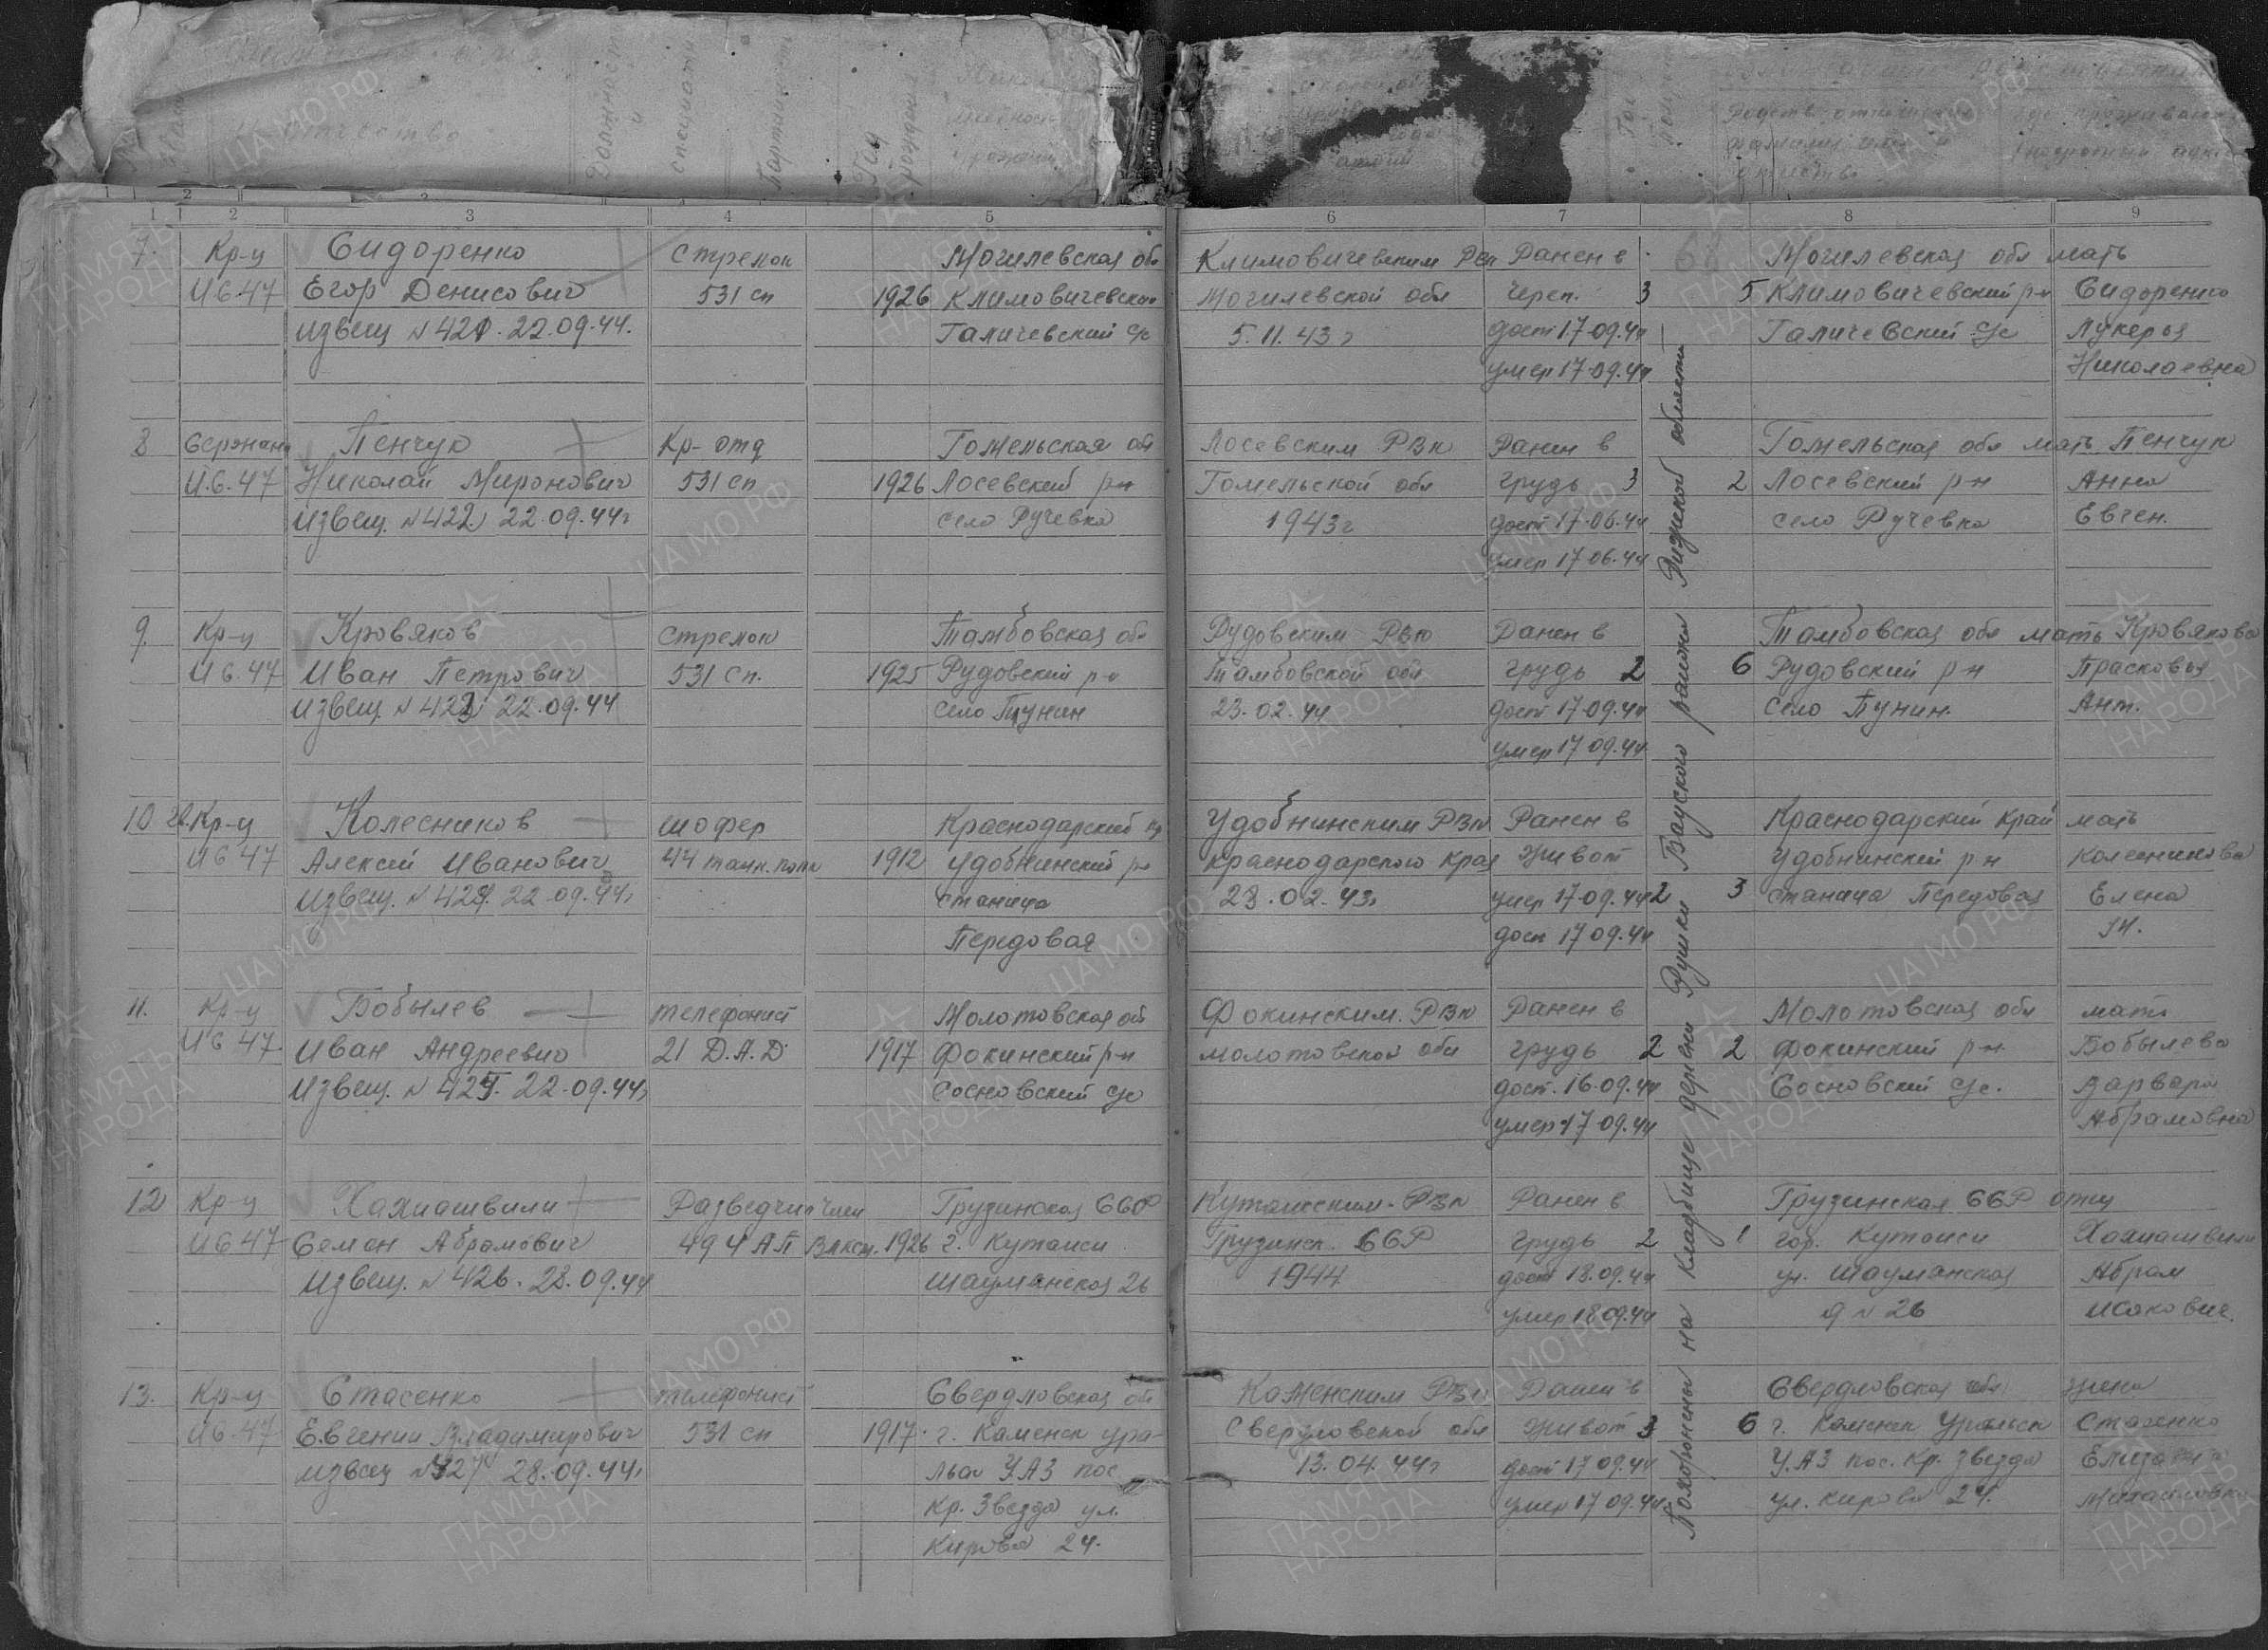 1 2 3 4 5 6 7 8 9
7. Кр-ц Сидоренко стрелок Могилевская обл Климовичевским Ранен в 68 Могилевская обл мать
И6.47 Егор Денисович 531 сп 1926 Климовичевский Могилевской обл череп. 3 5 Климовичевский р-н Сидоренко
извещ N 421. 22.09.44. Галичевский с/с 5.11.43г дост 17-09.44 Галичевский с/с Лукерья
умер 17-09.44 Николаевна
8 Сержант Пенчук Кр-отд Гомельская обл Лосевским РВК Ранен в Гомельская обл мать Пенчук
И.6.47 Николай Миронович 531 сп 1926 Лосевский р-н Гомельской обл грудь 3 2 Лосевский р-н Анна
Извещ. N 422. 22.09.44г село Ручевка 1943г дост 17-06.44 село Ручевка Евген.
умер 17 06.44
9. Кр-ц Кровяков стрелок Тамбовская обл Рудовским РВК Ранен в Тамбовская обл мать Кровякова
И6.47 Иван Петрович 531 сп. 1925 Рудовский р-н Тамбовской обл грудь 2 6 Рудовский р-н Прасковья
Извещ. N 423 22.09.44 село Пунин 23.02.44 дост 17-09.44 село Пунин. Ант.
умер 17 09.44.
10 Кр-ц Колесников шофер Краснодарский кр Удобнинским РВК Ранен в Краснодарский край мать
И6 47 Алексей Иванович 44 танк. полк 1912 Удобнинский р-н Краснодарского края живот Удобнинский р-н Колесникова
Извещ. N 424. 22.09.44г станица 28.02.43г умер 17-09.44 2 3 станица Передовая Елена
Передовая дост 17 09.44
11. Кр-ц Бобылев телефонист Молотовская обл Фокинским. РВК Ранен в Молотовская обл мать
И6 47. Иван Андреевич 21 Д.А.Д. 1917 Фокинский р-н Молотовской обл грудь 2 2 Фокинский р-н Бобылева
Извещ. N 425. 22.09.44г Сосновский с/с дост. 16.09.44 Сосновский с/с. Варвара
умер 17 09.44 Абрамовна
12 Кр-ц Хахиашвили Разведчик Член Грузинская ССР Кутаисским. РВК Ранен в Грузинская ССР отец
И6 47 Семен Абрамович 494 АП ВЛКСМ. 1926 г. Кутаиси Грузинск. ССР грудь 2 1 гор. Кутаиси Хахиашвили
Извещ. N 426. 28.09.44 Шаумянская 26 1944 дост 18.09.44 ул. Шаумянская Абрам
умер 18 09.44 д N 26 Исакович.
13. Кр-ц Стасенко телефонист Свердловская обл Каменским РВК Ранен в Свердловская обл жена
И6.47 Евгений Владимирович 531 сп 1917. г. Каменск Ура- Свердловской обл живот 3 6 г. Каменск Уральск Стасенко
извещ N 427 28.09.44г льск УАЗ пос 13.04.44г дост 17 09.44 УАЗ пос. Кр. Звезда
Кр. Звезда ул. умер 17 09.44 ул. Кирова 24. Михайловна
Кирова 24.
Похоронены на кладбище деревни Рушки Бауского района Рижской области
ПАМЯТЬ НАРОДА
ЦА МО РФ